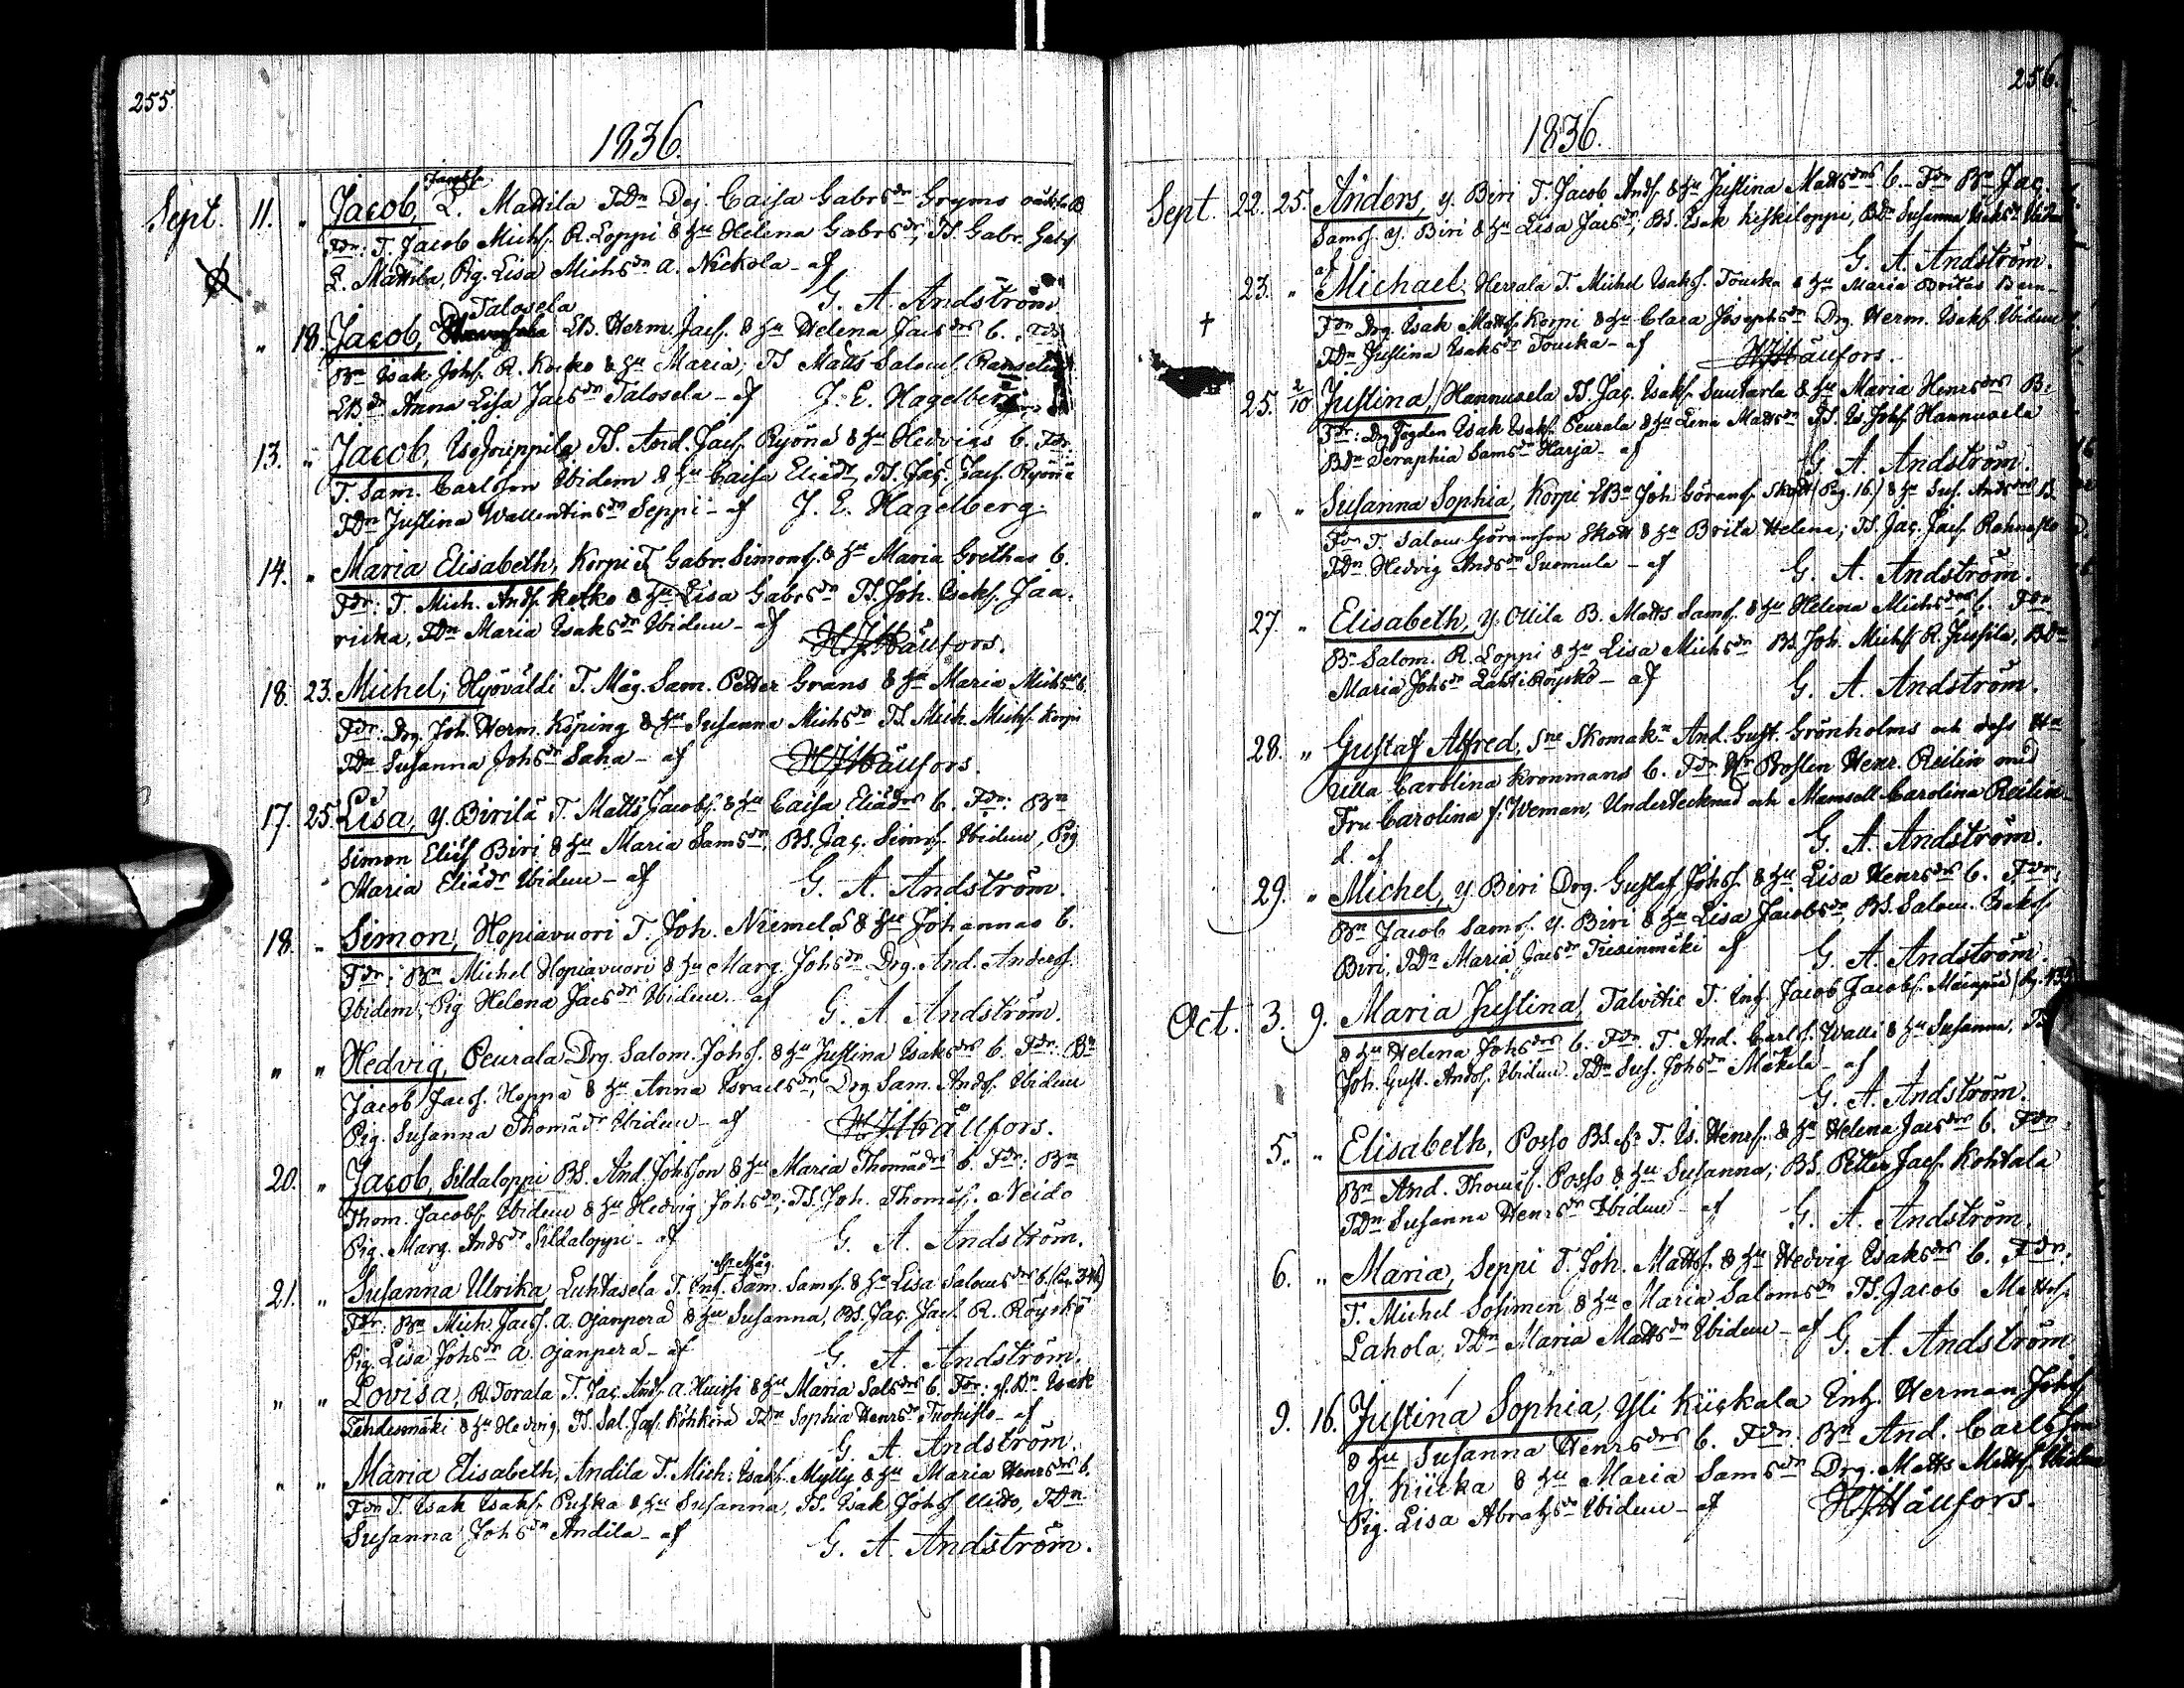 255.
1836.
Sept. 11. " Jacob, L. Mattila TDn Dej. Caisa Gabrsdr Gryms oäkta B
Fdr: T. Jacob Michs. R. Loppi & Hu Helena Gabrsdr, TS. Gabr. Gabs.
L. Mattila, Pig. Lisa Michsdr a. Nickola - af
G. A. Andström
Talosela
" 18. Jacob, EB. Herm. Jacs. & Hu Helena Jacsdrs b. Fdr
Bn Isak Johs. R. Kocko & Hu Maria; TS Matts Saloms.
EBdr Anna Lisa Jacsdr Talosela - af J. E. Hagelberg
13. " Jacob, Is. Jouppila TS. And. Jacs. Ryönä & Hu Hedvigs b. Fdr:
T. Sam. Carlsson Ibidem & Hu Caisa Eliädr, TS. Jac. Jacs. Ryönä
TDn Justina Wallentinsdr Seppi - af J. E. Hagelberg.
14. " Maria Elisabeth, Korpi T. Gabr. Simons. & Hu Maria Grethas b.
Fdr: T. Mich. Ands. Kotko & Hu Lisa Gabrsdr TS. Joh. Isaks. Jaa-
ricka, TDn Maria Isaksdr Ibidem - af Häufors.
18. 23. Michel, Hyöväldi T. Måg. Sam. Petter Grans & Hu Maria Michsdrs b.
Fdr: Drg. Joh. Herm. Köping & Hu Susanna Michsdr TS. Mich. Michs. Korpi
TDn Susanna Johsdr Saha - af Häufors.
17. 25. Lisa, y. Birilä T. Matts Jacobs. & Hu Caisa Eliädrs b. Fdr: Bn
Simon Elis. Biri & Hu Maria Samsdr, BS. Jac. Sims. Ibidem, Pig
Maria Eliädr Ibidem - af G. A. Andström.
18. - Simon, Hopiavuori T. Joh. Niemelä & Hu Johannas b.
Fdr: Bn Michel Hopiavuori & Hu Marg. Johsdr Drg. And. Anders.
Ibidem, Pig Helena Jacsdr Ibidem - af G. A. Andström.
" " Hedvig, Peurala Drg. Salom. Johs. & Hu Justina Isaksdrs b. Fdr: Bn
Jacob Jacs. Hoppa & Hu Anna Israelsdr, Drg Sam. Ands. Ibidem
Pig. Susanna Thomädr Ibidem - af Häufors.
20. " Jacob, Sildaloppi BS. And. Johsson & Hu Maria Thomädrs b. Fdr: Bn
Thom. Jacobs. Ibidem & Hu Hedvig Johsdr; TS. Joh. Thomäs. Neido
Pig. Marg. Andsdr Sildaloppi - af G. A. Andström.
21. " Susanna Ulrika, Luhtasela T. Inh. Sam. Sams. & Hu Lisa Salomsdrs b. (Pag. 346)
Fdr: Bn Mich. Jacs. a. Ojanperä & Hu Susanna, BS. Jac. Jacs. R. Röyskö
Pig. Lisa Johsdr a. Ojanperä - af G. A. Andström.
" " Lovisa, R. Torala T. Jac. Ands. a. Huirsi & Hu Maria Salsdrs b. Fdr: Isak
Lehdesmäki & Hu Hedvig, TS. Sal. Jacs. Köhkörä TDn Sophia Henrsdr Tuohisto - af
G. A. Andström.
" " Maria Elisabeth, Andila T. Mich. Isaks. Mylly & Hu Maria Henrsdrs b.
Fdr T. Isak Isaks. Puska & Hu Susanna, TS. Isak Johs. Uitto, TDn
Susanna Johsdr Andila - af G. A. Andström.
256.
1836.
Sept. 22. 25. Anders, y. Biri T. Jacob Ands. & Hu Justina Mattsdrs b. - Fdr Bn Jac.
Sams. y. Biri & Hu Lisa Jacsdr, BS. Isak Kiskiloppi, BDn Susanna Isaksdr Ibidem
af G. A. Andström.
23. " Michael, Hersala T. Michel Isaks. Toucka & Hu Maria Britas Barn -
Fdr Drg. Isak Matts. Korpi & Hu Clara Josephsdr Drg. Herm. Isaks. Ibidem
TDn Justina Isaksdr Toucka - af Häufors.
25. 2/10 Justina, Hannusela TS. Jac. Isaks. Suutarla & Hu Maria Henrsdrs B:
Fdr: Drg Isak Isaks. Peurala & Hu Lena Mattsdr TS. Is. Johs. Hannusela
BDn Seraphia Samsdr Harja - af G. A. Andström.
" " Susanna Sophia, Korpi EBn Joh. Görans. Skott (Pag. 16.) & Hu Sus. Andsdrs B.
Fdr T. Salom. Göransson Skott & Hu Brita Helena; TS. Jac. Jacs. Rahnasto
TDn. Hedvig Andsdr Suomula - af G. A. Andström.
27. " Elisabeth, y. Ollila B. Matts Sams. & Hu Helena Michsdrs b. Fdr
Bn Salom. R. Loppi & Hu Lisa Michsdr BS. Joh. Michs. R. Jussila, BDn
Maria Johsdr Lahti Röyskö - af G. A. Andström.
28. " Gustaf Alfred, Skomakn And. Gust. Grönholms och dess Hu
Ulla Carolina Kronmans b. Fdr Hr Prosten Henr. Reilin med
Fru Carolina f. Weman, Undertecknad och Mamsell Carolina Reilin
d. af G. A. Andström.
29. " Michel, y. Biri Drg. Gustaf Johs. & Hu Lisa Henrsdrs b. Fdr:
Bn Jacob Sams. y. Biri & Hu Lisa Jacobsdr, BS. Salom. Isaks.
Biri, TDn Maria Jacsdr Tuisinmäki af G. A. Andström.
Oct. 3. 9. Maria Justina, Talvitie T. Inh. Jacob Jacobs. Mäenpää
& Hu Helena Johsdrs b. Fdr. T. And. Carls. Walli & Hu Susanna,
Joh. Gust. Ands. Ibidem TDn Sus. Johsdr Mäkelä - af
G. A. Andström.
5. " Elisabeth, Posso BS. fr T. Is. Henrs. & Hu Helena Jacsdrs b. Fdr:
Bn And. Thomäs. Posso & Hu Susanna; BS. Petter Jacs. Kohtala
TDn Susanna Henrsdr Ibidem - af G. A. Andström.
6. " Maria, Seppi T. Joh. Matts. & Hu Hedvig Isaksdrs b. Fdr.
T. Michel Sosimen & Hu Maria Salomsdr TS. Jacob Matts.
Lahola, TDn Maria Mattsdr Ibidem - af G. A. Andström
9. 16. Justina Sophia, Yli Kiickala Inh. Herman Johs.
& Hu Susanna Henrsdrs b. Fdr. Bn And. Carlsson
y. Kiicka & Hu Maria Samsdr Drg. Matts Matts. Ibidem
Pig. Lisa Abrahsdr Ibidem - af Häufors.